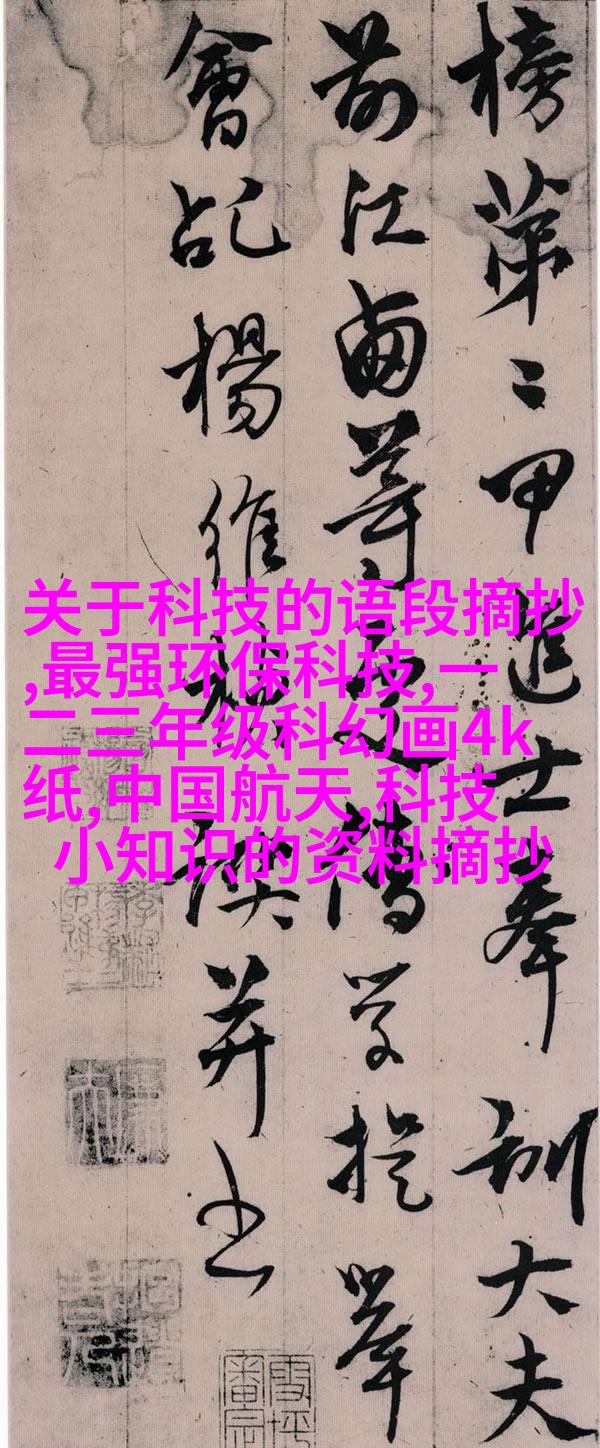 榜第二甲進士奉訓大夫
前江西等處儒學提舉
會稽楊維禎譔并書
关于科技的语段摘抄
,最强环保科技,一
二三年级科幻画4k
纸,中国航天,科技
小知识的资料摘抄